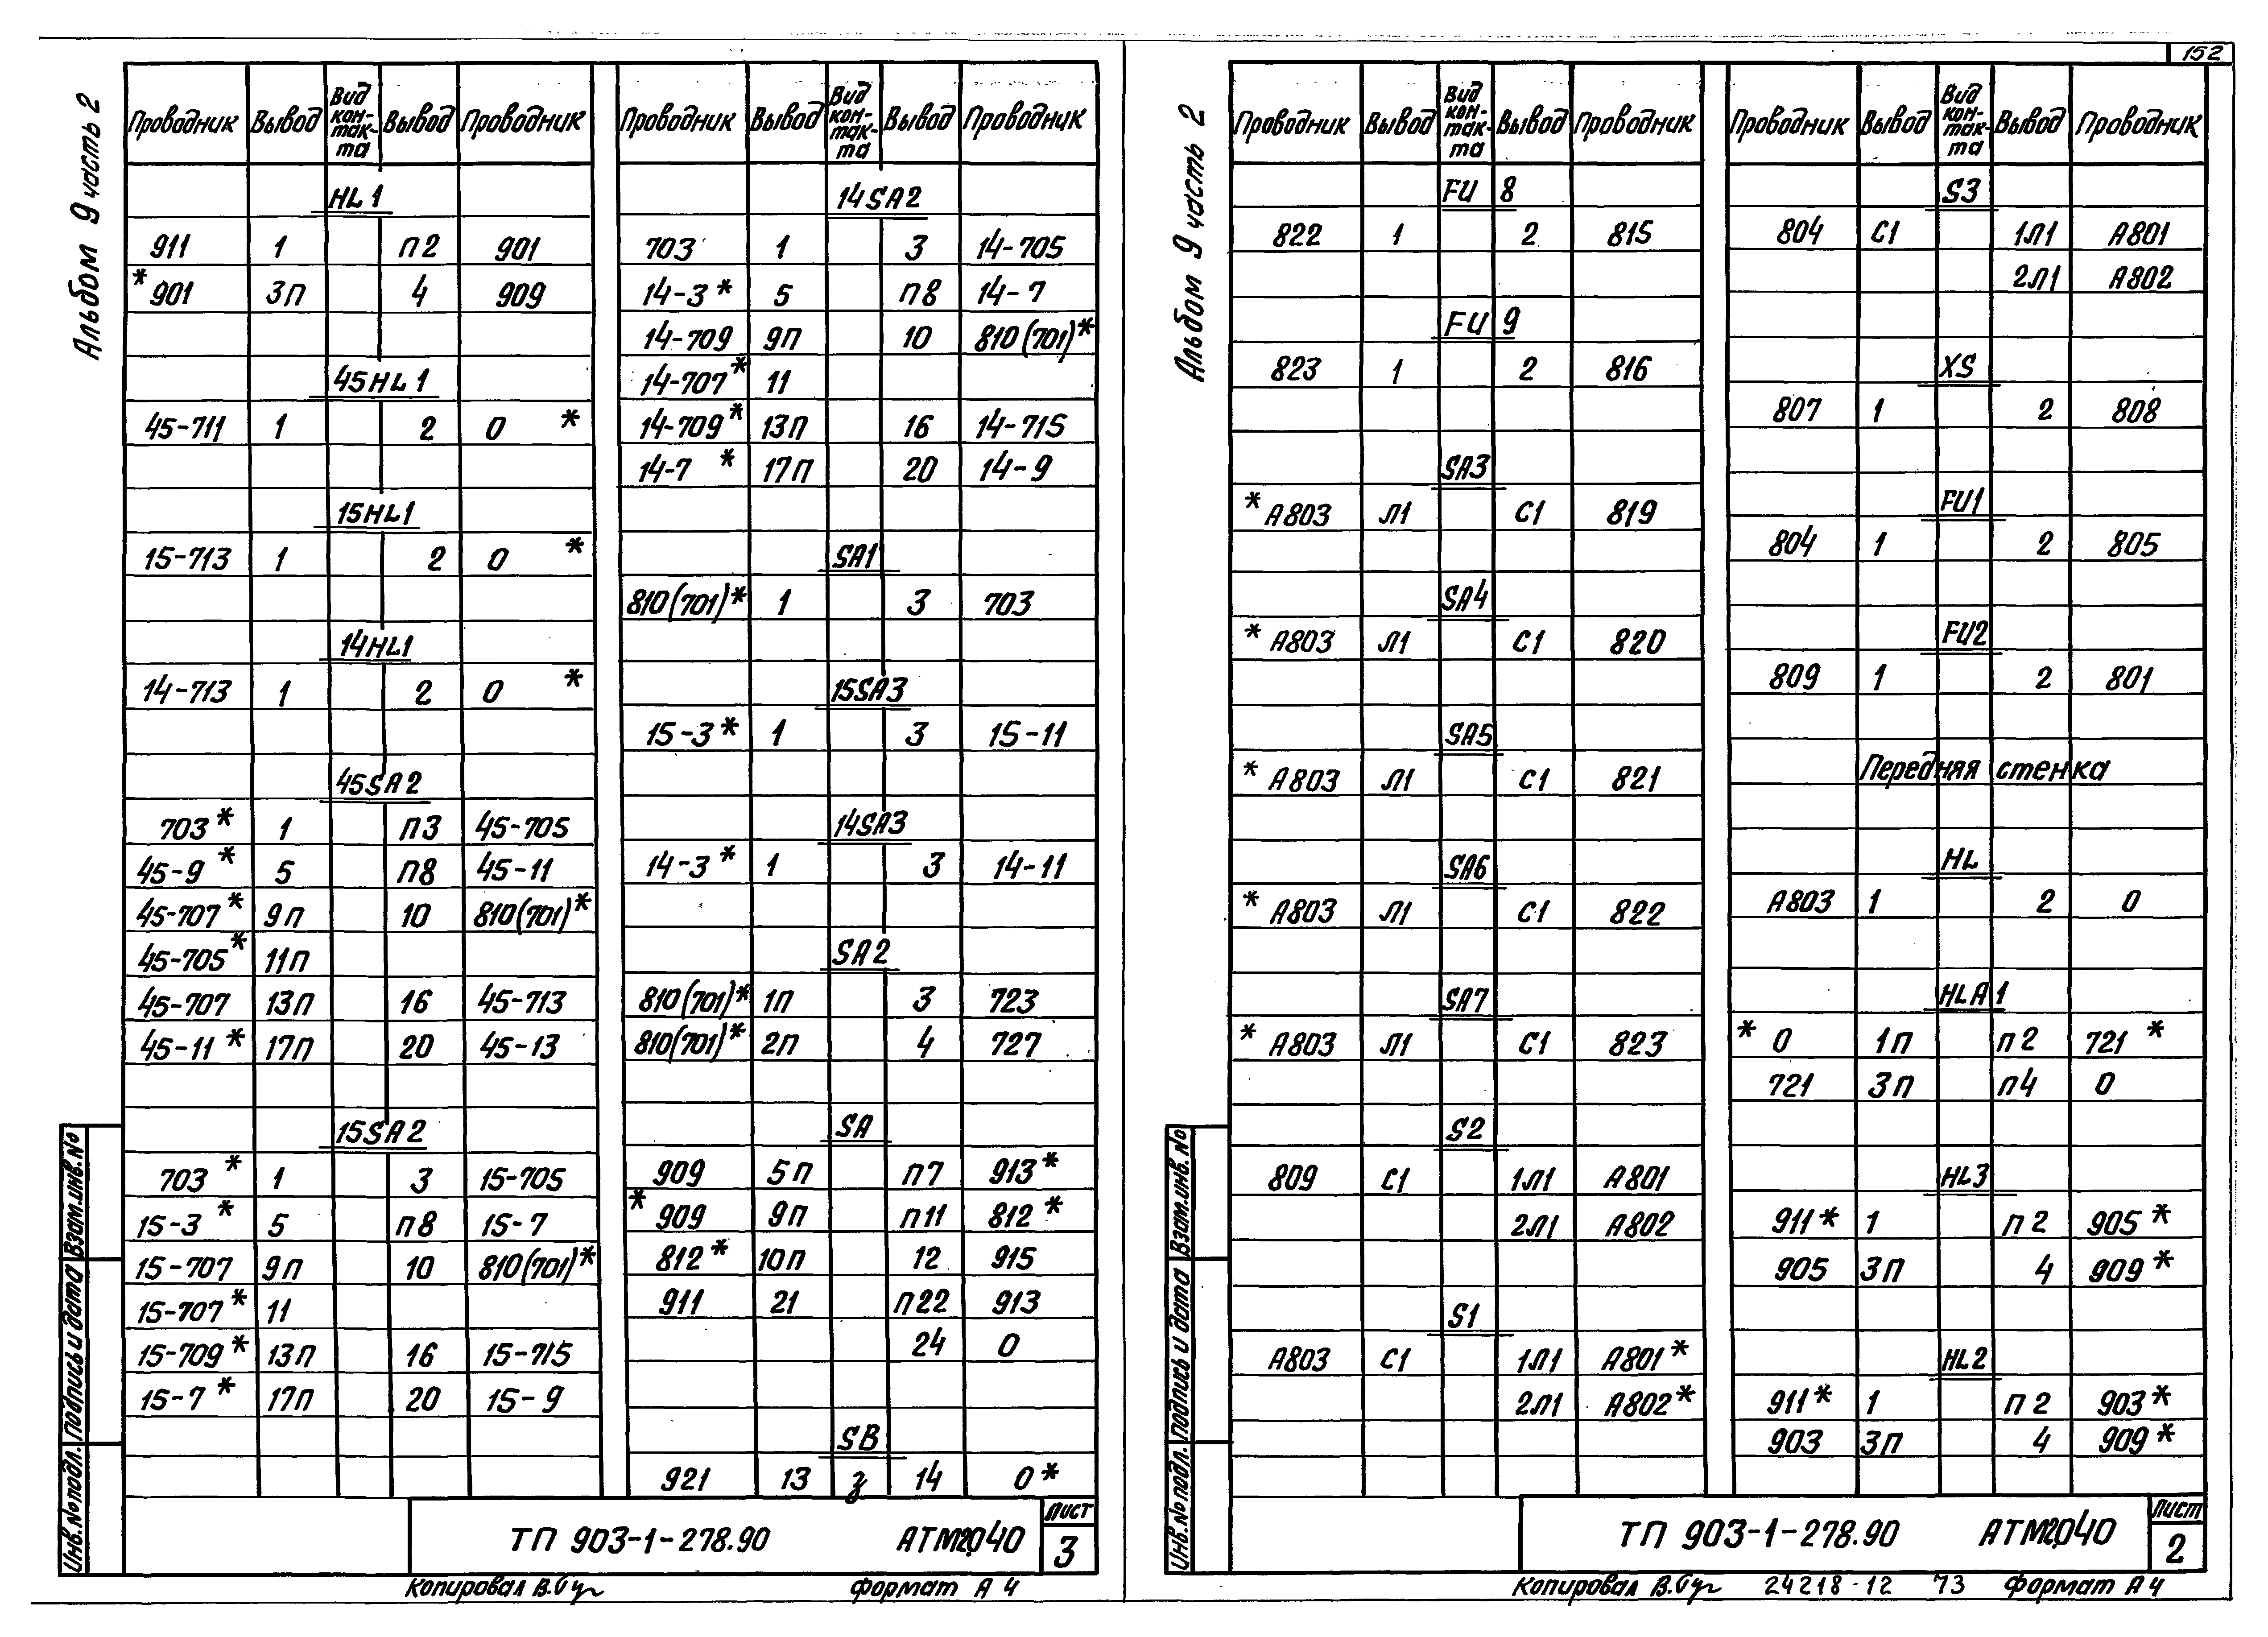 152
Альбом 9 часть 2
Проводник Вывод Вид кон-так-та Вывод Проводник
HL1
911 1 п2 901
*901 3п 4 909
45HL1
45-711 1 2 0 *
15HL1
15-713 1 2 0 *
14HL1
14-713 1 2 0 *
45SA2
703* 1 п3 45-705
45-9 * 5 п8 45-11
45-707* 9п 10 810(701)*
45-705* 11п
45-707 13п 16 45-713
45-11 * 17п 20 45-13
15SA2
703 * 1 3 15-705
15-3 * 5 п8 15-7
15-707 9п 10 810(701)*
15-707* 11
15-709* 13п 16 15-715
15-7 * 17п 20 15-9
Проводник Вывод Вид кон-так-та Вывод Проводник
14SA2
703 1 3 14-705
14-3 * 5 п8 14-7
14-709 9п 10 810(701)*
14-707* 11
14-709* 13п 16 14-715
14-7 * 17п 20 14-9
SA1
810(701)* 1 3 703
15SA3
15-3* 1 3 15-11
14SA3
14-3* 1 3 14-11
SA2
810(701)* 1п 3 723
810(701)* 2п 4 727
SA
909 5п п7 913*
*909 9п п11 812*
812* 10п 12 915
911 21 п22 913
24 0
SB
921 13 з 14 0*
Инв.№подл. Подпись и дата Взам.инв.№
ТП 903-1-278.90 АТМ2.040
Лист
3
Копировал В.
формат А4
Альбом 9 часть 2
Проводник Вывод Вид кон-так-та Вывод Проводник
FU 8
822 1 2 815
FU 9
823 1 2 816
SA3
*А803 Л1 С1 819
SA4
*А803 Л1 С1 820
SA5
*А803 Л1 С1 821
SA6
*А803 Л1 С1 822
SA7
*А803 Л1 С1 823
S2
809 С1 1Л1 А801
2Л1 А802
S1
А803 С1 1Л1 А801*
2Л1 А802*
Проводник Вывод Вид кон-так-та Вывод Проводник
S3
804 С1 1Л1 А801
2Л1 А802
XS
807 1 2 808
FU1
804 1 2 805
FU2
809 1 2 801
Передняя стенка
HL
А803 1 2 0
HLA1
* 0 1п п2 721 *
721 3п п4 0
HL3
911* 1 п2 905*
905 3п 4 909*
HL2
911* 1 п2 903*
903 3п 4 909*
Инв.№подл. Подпись и дата Взам.инв.№
ТП 903-1-278.90 АТМ2.040
Лист
2
Копировал В.
24218-12 73 формат А4